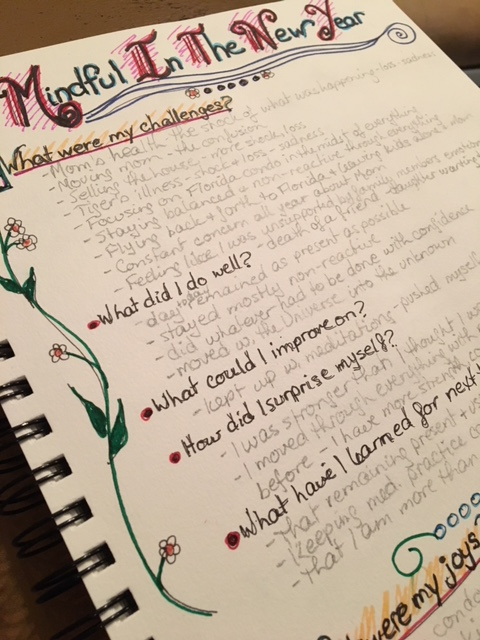 Mindful In The New Year
What were my challenges?
- Mom's health - the shock of what was happening - loss - sadness
- Moving mom - the confusion
- Selling the house - more shock loss
- Tiger's illness - shock & loss - sadness
- Focusing on Florida condo in the midst of everything
- Staying balanced & non-reactive through everything
- Flying back & forth to Florida & leaving kids alone &
- Constant concern all year about Mom
- Feeling like I was unsupported by family members
- death of a friend - daughter wanting
What did I do well?
- day to day remained as present as possible
- stayed mostly non-reactive
- did whatever had to be done with confidence
- moved w the Universe into the unknown
What could I improve on?
- kept up w meditations - pushed myself
How did I surprise myself?
- I was stronger than I thought I
- I moved through everything with
before - I have more strength
What have I learned for next
- That remaining present &
- Keeping med. practice
- that I am more than
were my joys